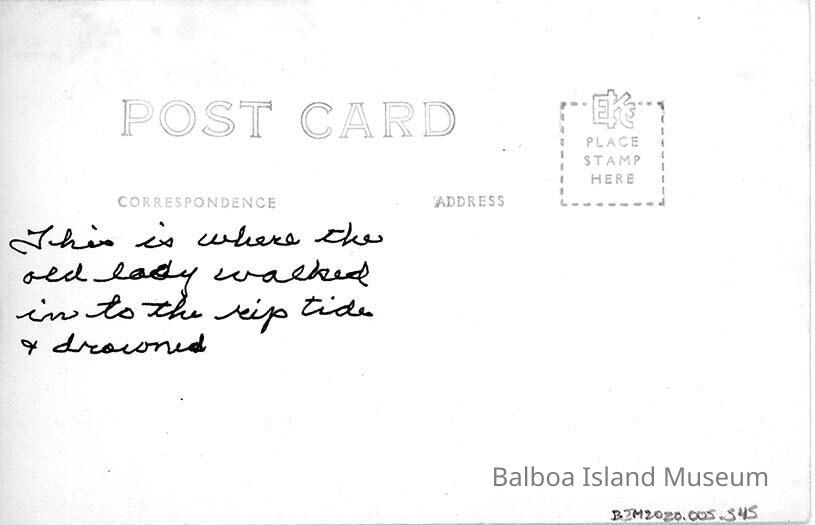 POST CARD
EKC
PLACE
STAMP
HERE
CORRESPONDENCE ADDRESS
This is where the
old lady walked
in to the rip tide
& drowned
Balboa Island Museum
BIM2020.005.545